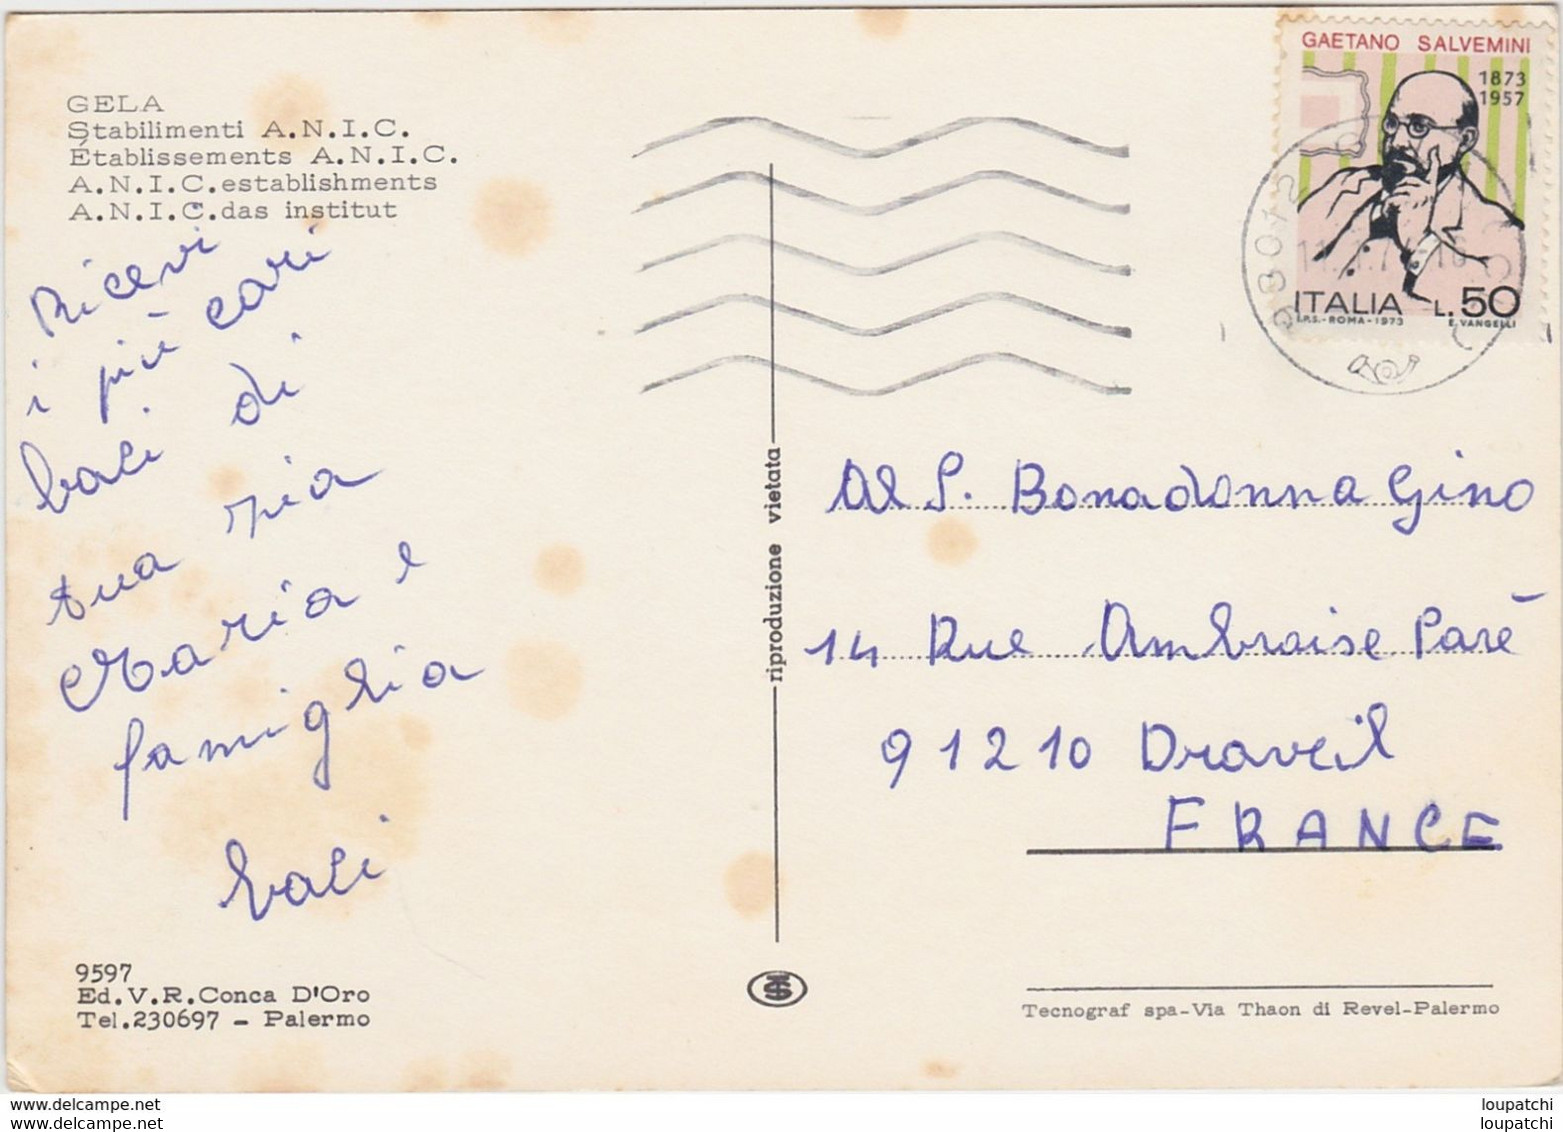 GELA
Stabilimenti A.N.I.C.
Établissements A.N.I.C.
A.N.I.C.establishments
A.N.I.C.das institut
Ricevi
i più cari
baci di
tua zia
Maria e
famiglia
baci
9597
Ed.V.R.Conca D'Oro
Tel.230697 - Palermo
riproduzione vietata
GAETANO SALVEMINI
1873
1957
ITALIA L.50
I.P.S.-ROMA-1973 E. VANGELLI
Al S. Bonadonna Gino
14 Rue Ambroise Paré
91210 Draveil
FRANCE
Tecnograf spa-Via Thaon di Revel-Palermo
www.delcampe.net
www.delcampe.net
loupatchi
loupatchi